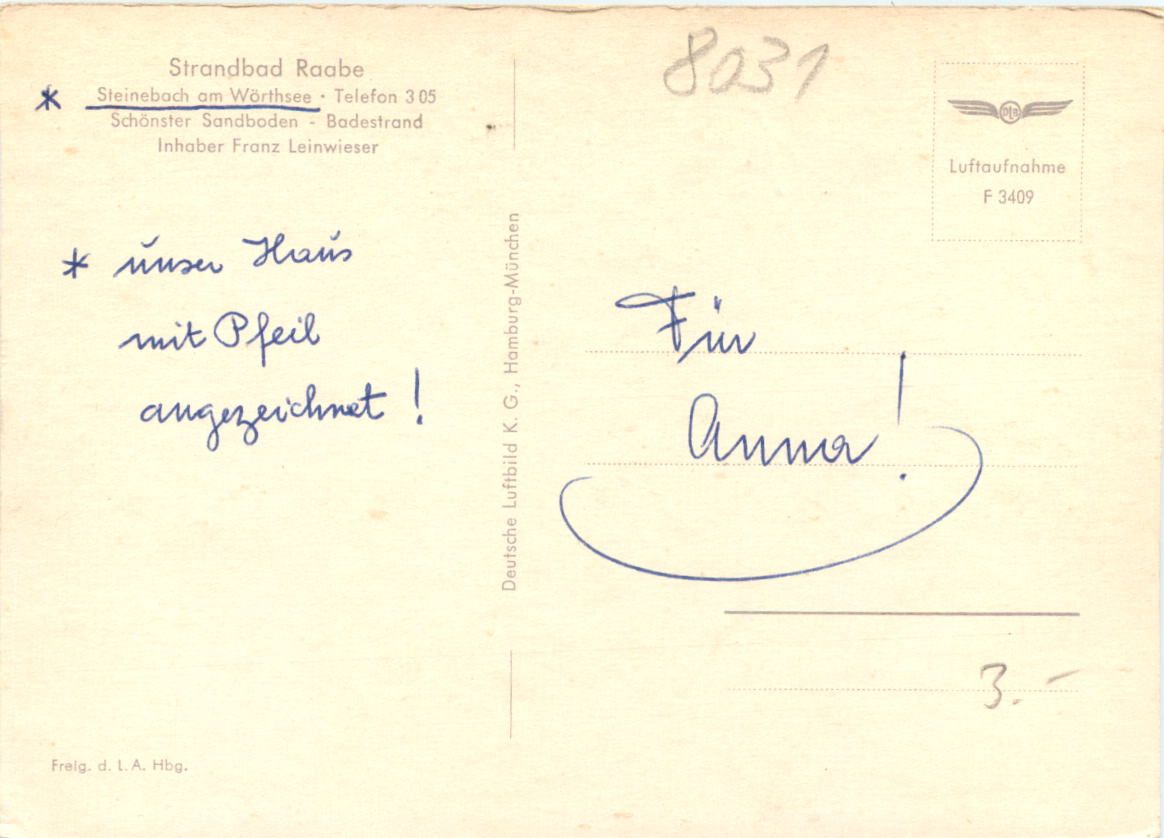 Strandbad Raabe
* Steinebach am Wörthsee · Telefon 3 05
Schönster Sandboden - Badestrand
Inhaber Franz Leinwieser
* unser Haus
mit Pfeil
angezeichnet !
Freig. d. L. A. Hbg.
Deutsche Luftbild K. G., Hamburg-München
8031
DLB
Luftaufnahme
F 3409
Für
Anna!
3.-